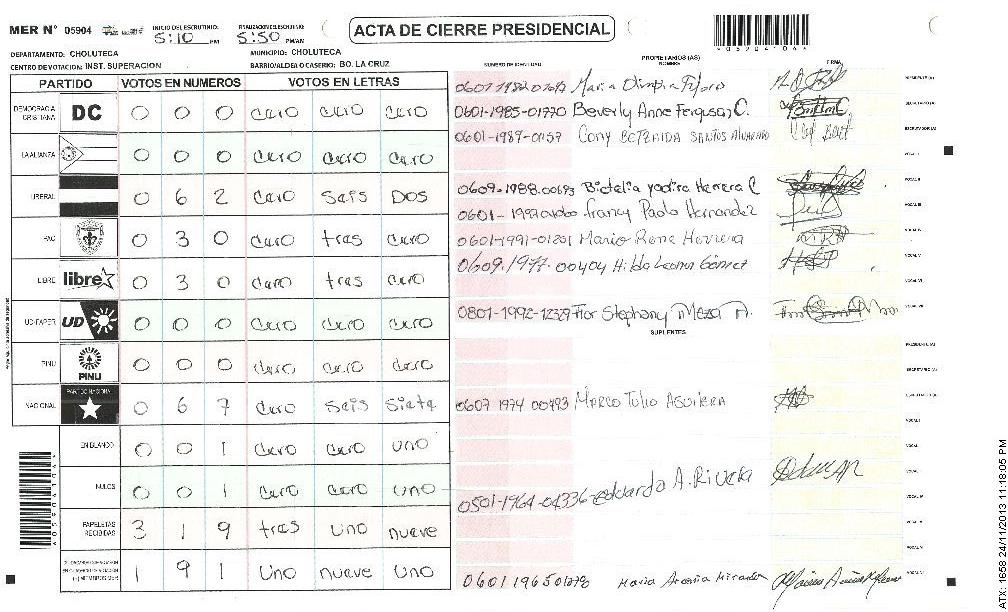 MER N° 05904
INICIO DEL ESCRUTINIO:
5:10 PM
FINALIZACION ESCRUTINIO:
5:50 PM/AM
ACTA DE CIERRE PRESIDENCIAL
DEPARTAMENTO: CHOLUTECA
MUNICIPIO: CHOLUTECA
CENTRO DE VOTACION: INST. SUPERACION
BARRIO/ALDEA O CASERIO: BO. LA CRUZ
PARTIDO VOTOS EN NUMEROS VOTOS EN LETRAS
DEMOCRACIA CRISTIANA DC 0 0 0 Cero Cero Cero
LA ALIANZA 0 0 0 Cero Cero Cero
LIBERAL 0 6 2 Cero Seis Dos
PAC 0 3 0 Cero tres Cero
LIBRE libre 0 3 0 Cero tres Cero
UD-FAPER UD 0 0 0 Cero Cero Cero
PINU PINU 0 0 0 Cero Cero Cero
NACIONAL PARTIDO NACIONAL 0 6 7 Cero Seis Siete
EN BLANCO 0 0 1 Cero Cero Uno
NULOS 0 0 1 Cero Cero Uno
PAPELETAS RECIBIDAS 3 1 9 tres Uno nueve
(+) MIEMBROS MER 1 9 1 Uno nueve Uno
NUMERO DE IDENTIDAD
PROPIETARIOS (AS)
NOMBRE
FIRMA
PRESIDENTE (A)
0601-1985-01770 Beverly Anne Ferguson C.
SECRETARIO (A)
0601-1987-0157
ESCRUTADOR (A)
VOCAL I
0609-1988-00693 Bictalia yadira Herrera C
VOCAL II
Francy Paola Hernandez
VOCAL III
0601-1991-01281 Mario Rene Herrera
VOCAL IV
0609-1977-00404 Hilda Leonor Gómez
VOCAL V
VOCAL VI
0801-1992-12329 Flor Stephany Meza A.
VOCAL VII
SUPLENTES
PRESIDENTE (A)
SECRETARIO (A)
0607 1974 00493 MARCO TULIO AGUILERA
ESCRUTADOR (A)
VOCAL I
VOCAL II
0501-1964-04336 Eduardo A. Rivera
VOCAL V
VOCAL VI
Maria Miranda
ATX: 1658 24/11/2013 11:18:05 PM